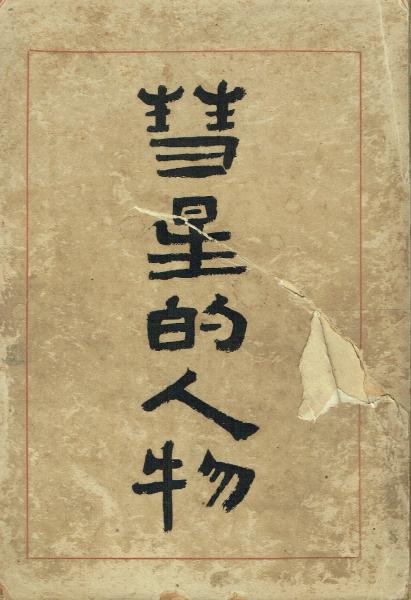 彗星的人物